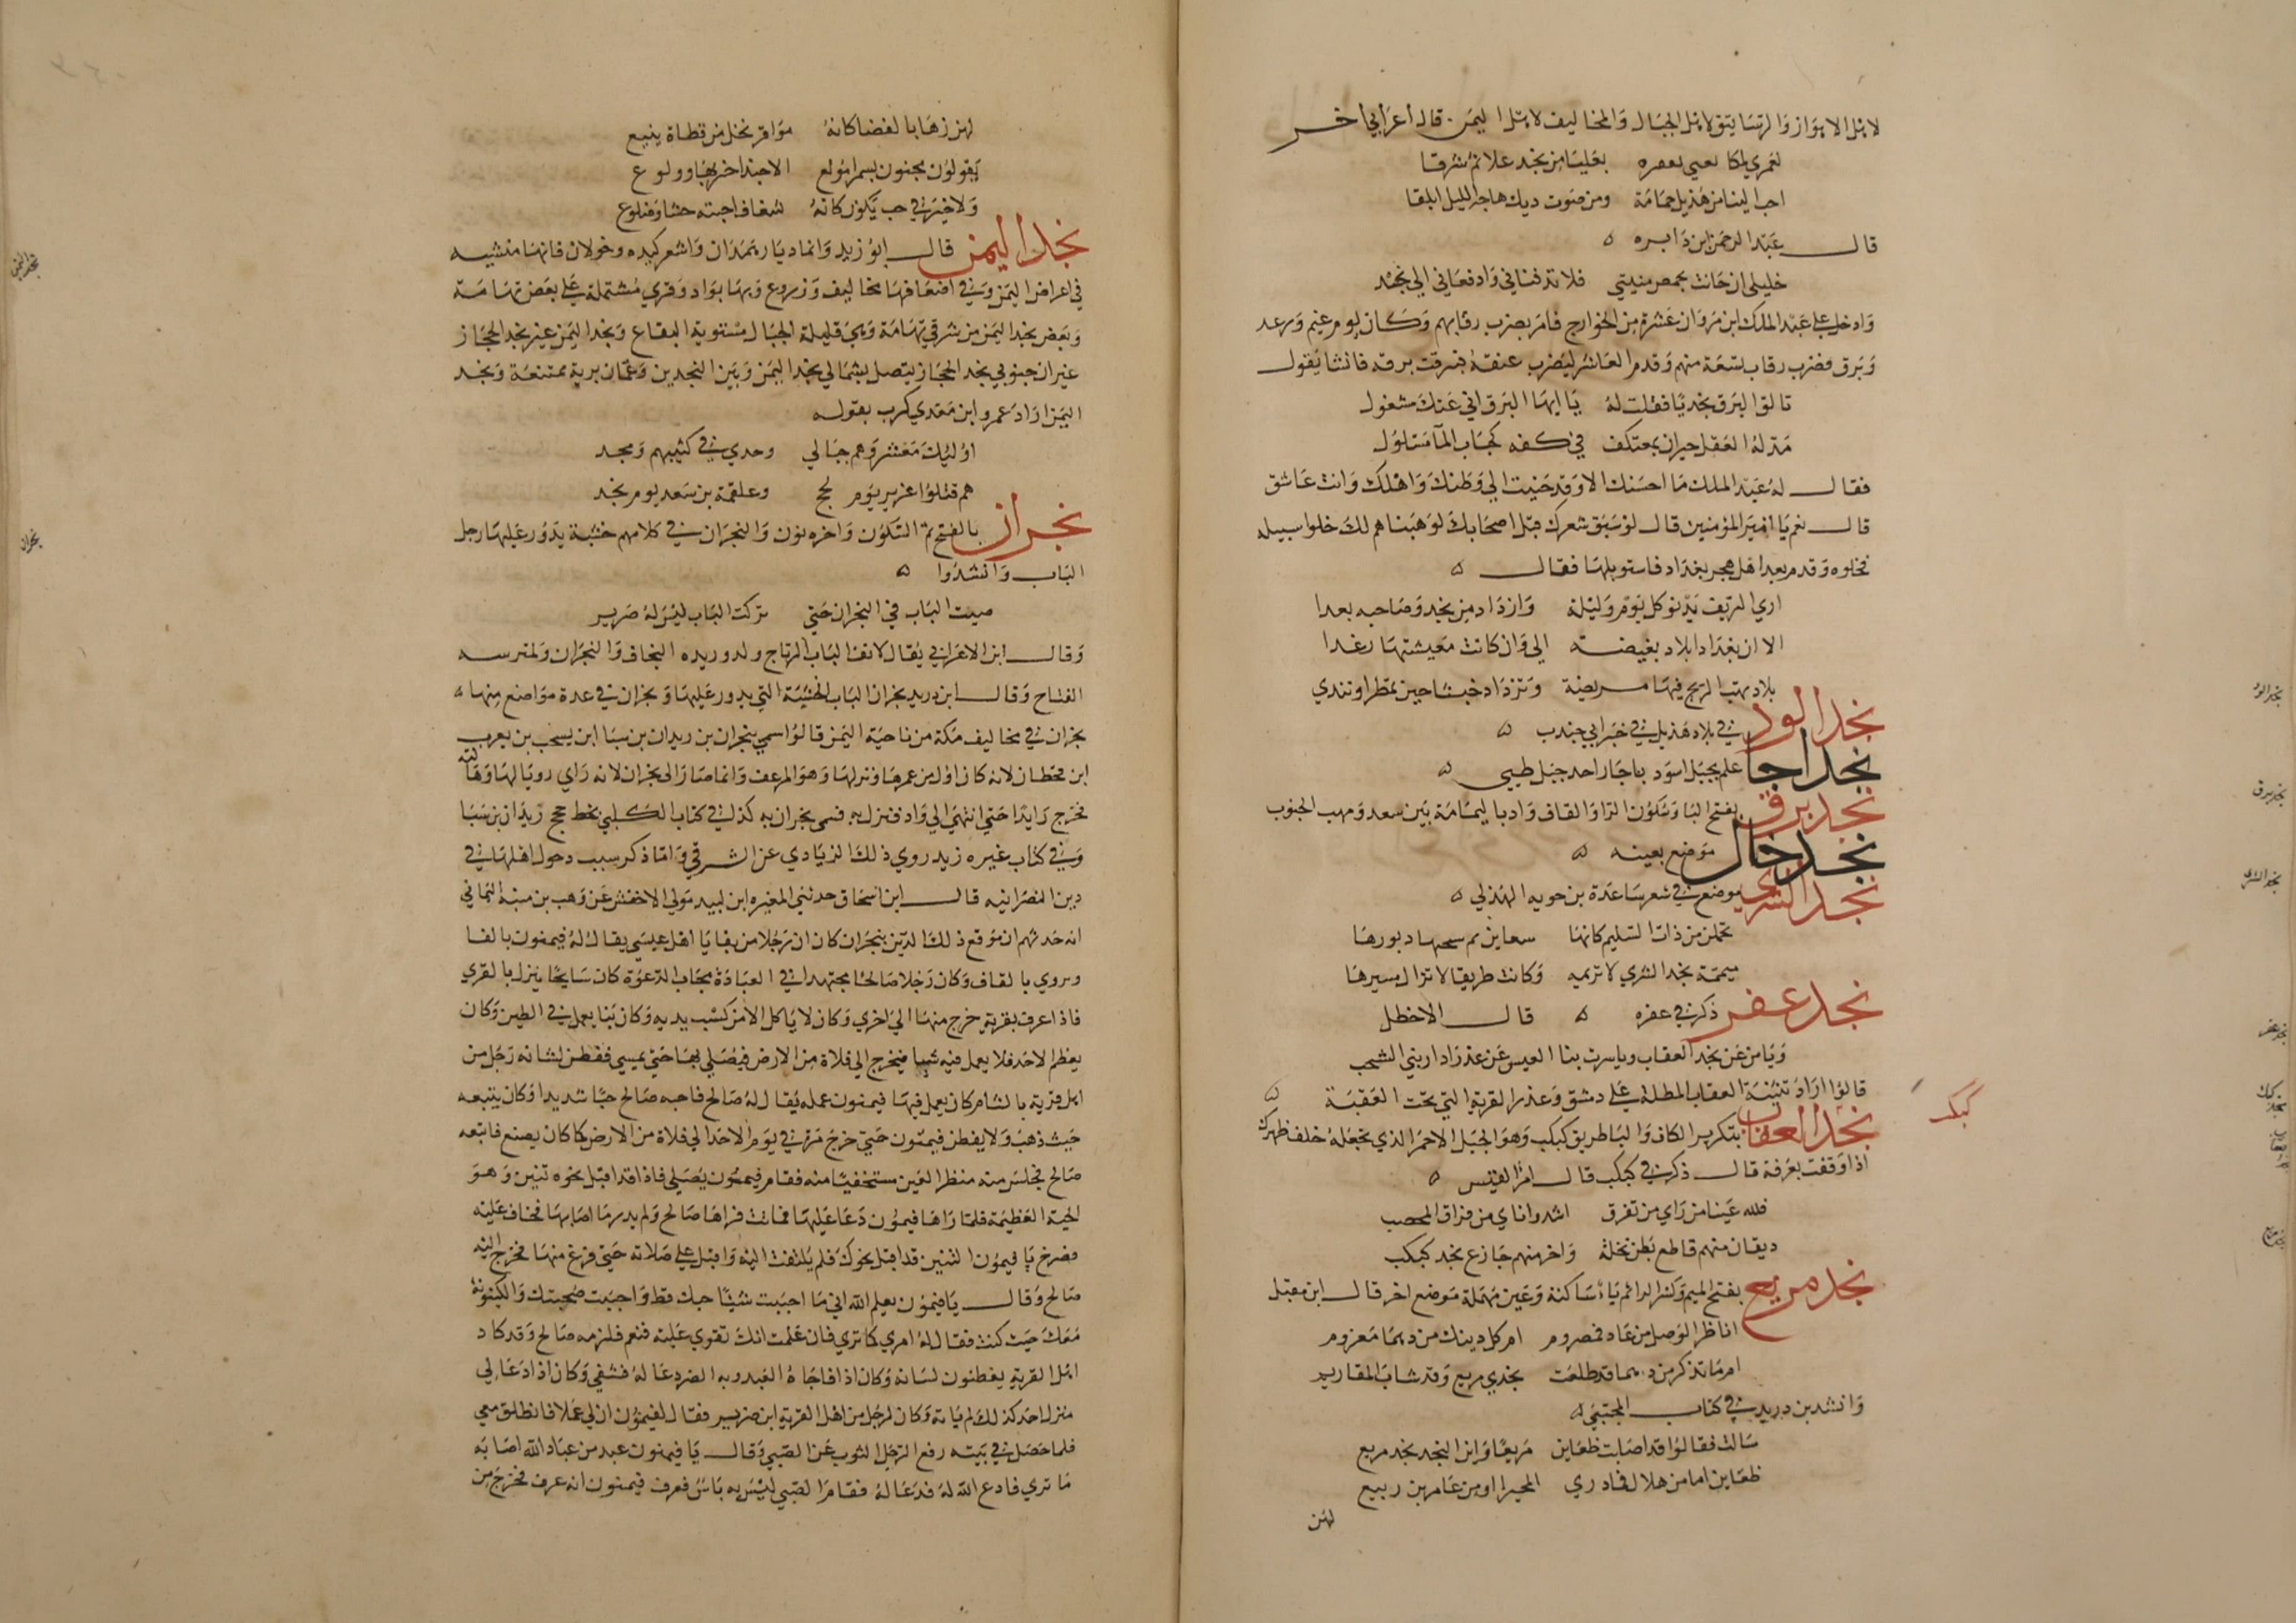 لاهل الاهواز والرساتيق لاهل الجبال والمخاليف لاهل اليمن. قال اعرابي اخر
لعمري لمكا بعفره بعليا من نجد علا ثم شرقا
احب الينا من هديل حمامة ومن صوت ديك هاجه الليل ابلقا
قال عبد الرحمن ابن دابره ه
خليلي ان حانت بحمص منيتي فلا تدفناني وادفعاني الي نجد
وادخل علي عبد الملك ابن مروان عشرة من الخوارج فامر بضرب رقابهم وكان يوم غيم ورعد
وبرق فضرب رقاب تسعة منهم وقدم العاشر ليضرب عنقه فبرقت برقه فانشا يقول
تالق البرق نجديا فقلت له يا ايها البرق اني عنك مشغول
مذله العقل حيران بمعتكف في كفه كحباب المآ مسلول
فقال له عبد الملك ما احسبك الا وقد حنيت الي وطنك واهلك وانت عاشق
قال نعم يا امير المؤمنين قال لو سبق شعرك قبل اصحابك لوهبناهم لك خلوا سبيله
فخلوه وقدم بعد اهل هجر بغداد فاستوبلها فقال ه
اري الريف يدنو كل يوم وليلة وازداد من نجد وصاحبه بعدا
الا ان بغداد بلاد بغيضه الي وان كانت معيشتها رغدا
بلاد تهب الريح فيها مريضة وتزداد خبثا حين تمطر او تندي
نجد الوذ في بلاد هذيل في خبر ابي جندب ه
نجد اجا علم بجبل اسود باجا راحد جبل طيي ه
نجد برق بفتح البا وسكون الرا والقاف واد باليمامة بين سعد ومهب الجنوب
نجد خال موضع بعينه ه
نجد الشرى موضع في شعر ساعدة بن جويه الهذلي ه
تحملن من ذات السليم كانها سفاين يم دبورها
ميممة نجد الشري لا تريمه وكانت طريقا لا تزال مسيرها
نجد عفر ذكر في عفره ه قال الاخطل
ويامن عن نجد العقاب وياسرت بنا العيس عن عذرا دار بني الشجب
قالوا اراد ثنية العقاب المطلة علي دمشق وعذرا القرية التي تحت العقبة ه
كبكب
نجد العقاب بتكرير الكاف والبا طريق كبكب وهو الجبل الاحمر الذي تجعله خلف ظهرك
اذا وقفت بعرفة قال ذكر في كبكب قال امرا القيس ه
فلله عينا من راي من تفرق اشد واناي من فراق المحصب
فريقان منهم قاطع بطن نخلة واخر منهم جازع نجد كبكب
نجد مريع بفتح الميم وكسر الرا ثم ياء ساكنة وعين مهملة موضع اخر قال ابن مقبل
اناظر الوصل من غاد فمصروم ام كل دينك من دهما مغروم
ام ما تذكر من دهما قد طلعت نجدي مريع وقد شاب المقاديم
وانشد بن دريد في كتاب المجتبي ه
سالت فقالوا قد اصابت ظعاين مريعا واين النجد نجد مريع
ظعاين اما من هلال فما دري المخبر او من عامر بن ربيع
لهن
لهن زهاء بالفضا كانه مواقر نخل من قطاة ينيع
يقولون مجنون بسمرا مولع الا حبذا حرها وولوع
ولا خير في حب يكون كانه شغاف اجنته حشا وضلوع
نجد اليمن قال ابو زيد وانما ديار همدان واشعر وكنده وخولان فانها مفتشيه
في اعراض اليمن وفي اضعافها مخاليف وزروع وبها بواد وقري مشتملة علي بعض تهامة
وبعض نجد اليمن من شرقي تهامة وهي قليلة الجبال مستوية البقاع ونجد اليمن غير نجد الحجاز
غير ان جنوبي نجد الحجاز يتصل بشمالي نجد اليمن وبين النجدين وعمان برية ممتنعة ونجد
اليمن اراد عمرو ابن معدي كرب بقوله
اوليك معشر وهم جبالي وحدي في كثيبهم ومجد
هم قتلوا عزيز يوم لحج وعلقمة بن سعد يوم نجد
نجران بالفتح ثم السكون واخره نون والنجران في كلامهم خشبة يدور عليها رجل
الباب وانشدوا ه
صببت الباب في النجران حتي تركت الباب ليس له صرير
وقال ابن الاعرابي يقال لانف الباب الرتاج ولدورنده النجاف والنجران ولمترسه
الفتاح وقال ابن دريد نجران الباب الخشبة التي يدور عليها ونجران في عدة مواضع منها ه
نجران في مخاليف مكة من ناحية اليمن قالوا سمي بنجران بن زيدان بن سبا ابن يسحب بن يعرب
ابن قحطان لانه كان اول من عمرها ونزلها وهو المرعف وانما صار الي نجران لانه راي رويا لهالته
فخرج رايدا حتي انتهي الي واد فنزل به فسمي نجران به كذا في كتاب الكلبي بخط حج زيدان بن سبا
وفي كتاب غيره زيد روي ذلك الزيادي عن الشرقي واما ذكر سبب دخول اهلها في
دين النصرانيه قال ابن اسحاق حدثني المغيره ابن لبيد مولي الاخنش عن وهب بن منبه اليماني
انه حدثهم ان موقع ذلك الدين بنجران كان ان رجلا من بقايا اهل عيسي يقال له فيميون بالفا
وروي بالقاف وكان رجلا صالحا مجتهدا في العبادة مجاب الدعوة كان سايحا ينزل بالقري
فاذا عرف بقرية خرج منها الي اخري وكان لا ياكل الا من كسب يديه وكان بنا يعمل في الطين وكان
يعظم الاحد فلا يعمل فيه شيا فيخرج الي فلاة من الارض فيصلي بها حتي يمسي ففطن لشانه رجل من
اهل قرية بالشام كان يعمل فيها فيميون عمله يقال له صالح فاحبه صالح حبا شديدا وكان يتبعه
حيث ذهب ولا يفطن فيميون حتي خرج مرة في يوم الاحد الي فلاة من الارض كما كان يصنع فاتبعه
صالح فجلس منه منظر العين مستخفيا منه فقام فيميون يصلي فاذا قد اقبل نحوه تنين وهو
الحية العظيمة فلما راها فيميون دعا عليها فماتت فراها صالح ولم يدر ما اصابها فخاف عليه
فصرخ يا فيميون التنين قد اقبل نحوك فلم يلتفت اليه واقبل علي صلاته حتي فرغ منها فخرج اليه
صالح وقال يا فيميون يعلم الله اني ما احببت شيئا حبك قط واحببت صحبتك والكينونة
معك حيث كنت فقال له امري كما تري فان علمت انك تقوي عليه فنعم فلزمه صالح وقد كاد
اهل القرية يفطنون لشانه وكان اذا فاجاه العبد وبه الضر دعا له فشفي وكان اذا دعا لي
منزل احد كذلك لم ياته وكان لرجل من اهل القرية ابن ضرير فقال لفيميون ان لي عملا فانطلق معي
فلما حصل في بيته رفع الرجل الثوب عن الصبي وقال يا فيميون عبد من عباد الله اصابه
ما تري فادع الله له فدعا له فقام الصبي ليس به باس فعرف فيميون انه عرف فخرج من